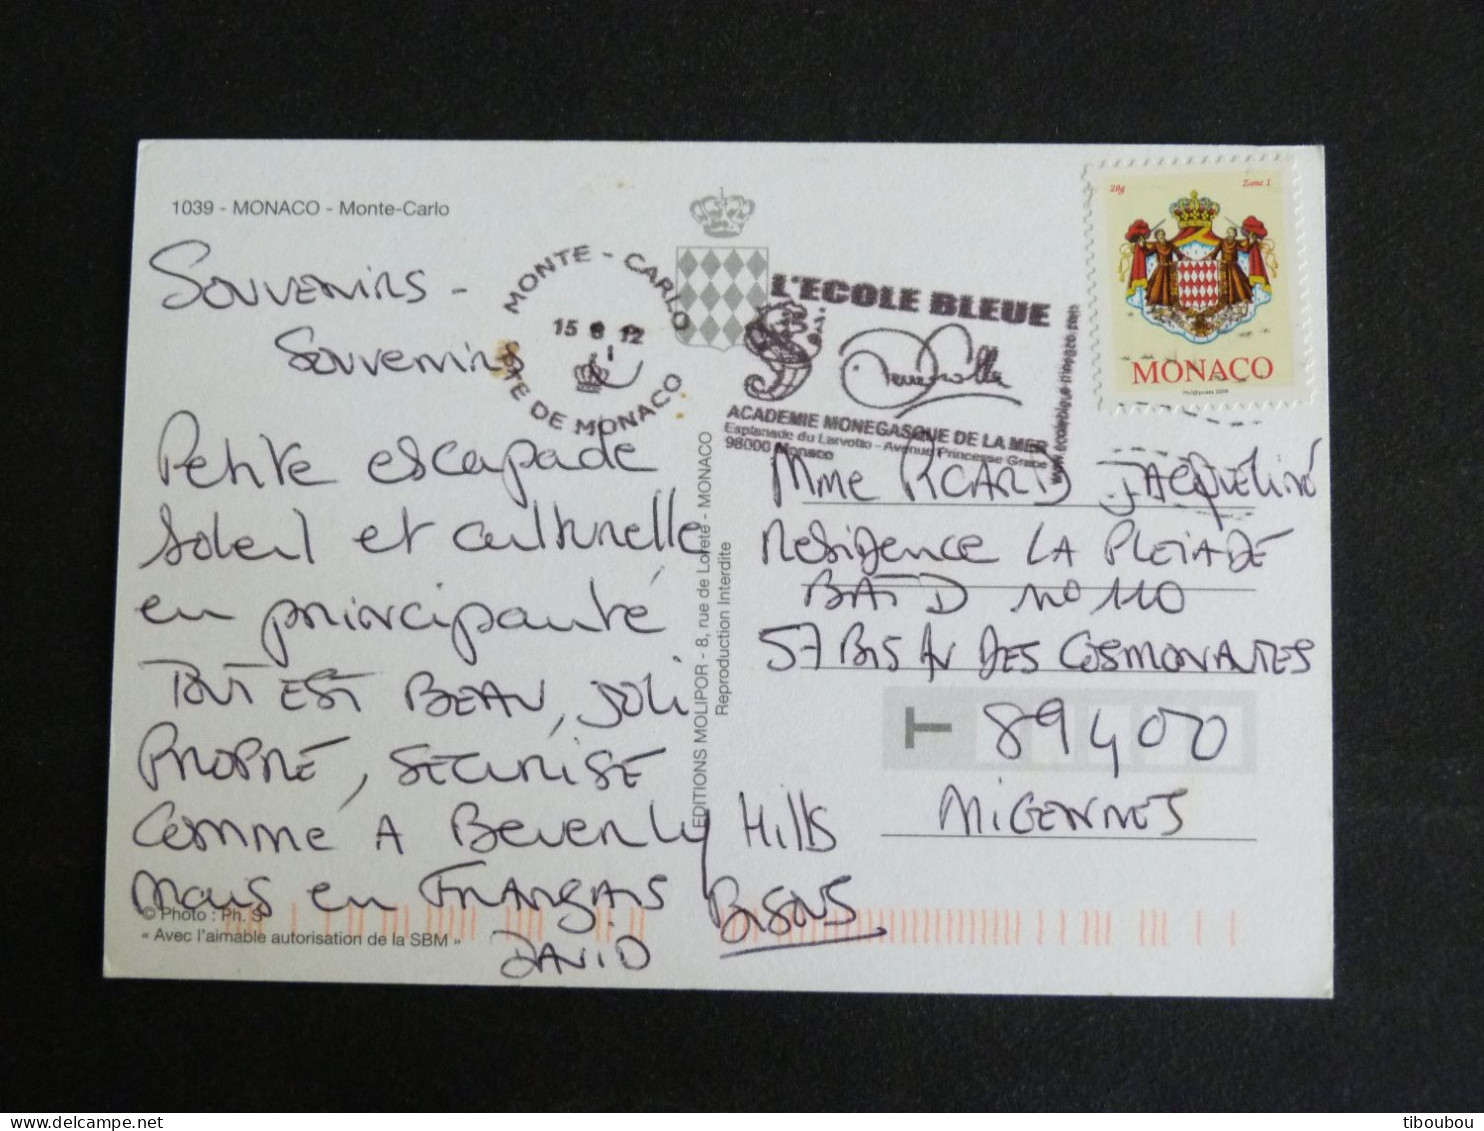 1039 - MONACO - Monte-Carlo
Souvenirs -
Souvenirs
Petite escapade
soleil et culturelle
en principauté
TOUT EST BEAU, JOLI
PROPRE, SECURISE
Comme A Beverly Hills
mais en FRANÇAIS
BISOUS
DAVID
© Photo : Ph. S
« Avec l'aimable autorisation de la SBM »
EDITIONS MOLIPOR - 8, rue de Lorete - MONACO
Reproduction Interdite
MONTE - CARLO
15 6 12
PTE DE MONACO
L'ECOLE BLEUE
ACADEMIE MONEGASQUE DE LA MER
Esplanade du Larvotto - Avenue Princesse Grace
98000 Monaco
www.ecolebleue-monaco.com
20g Zone 1
MONACO
Mme PICARD JACQUELINE
Residence LA PLEIADE
BAT D N° 110
57 BIS AV DES COSMONAUTES
T 89400
MIGENNES
tiboubou